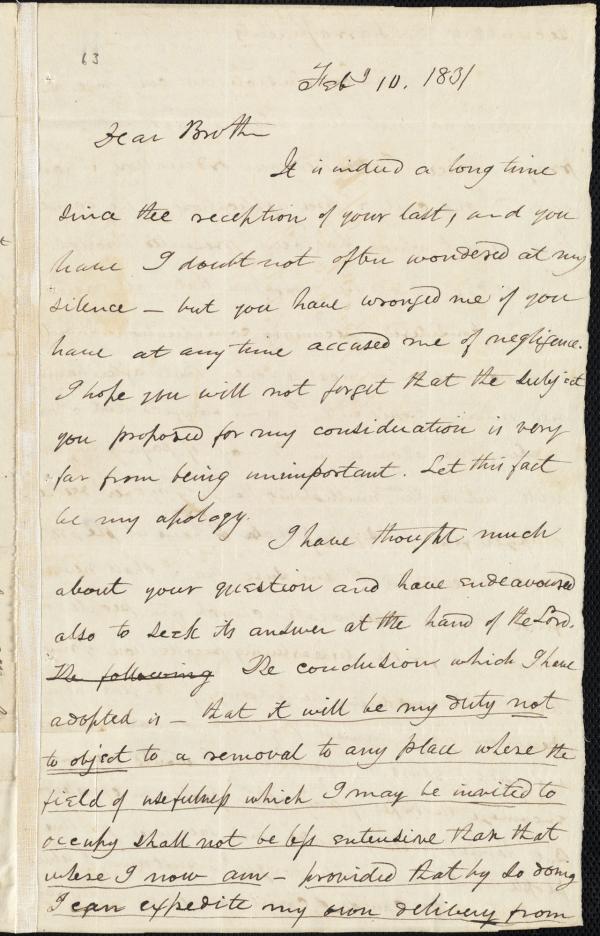 63
Feby 10. 1831
Dear Brother
It is indeed a long time
since the reception of your last, and you
have I doubt not often wondered at my
silence – but you have wronged me if you
have at any time accused me of negligence.
I hope you will not forget that the subject
you proposed for my consideration is very
far from being unimportant. Let this fact
be my apology.
I have thought much
about your question and have endeavoured
also to seek its answer at the hand of the Lord.
The following The conclusion which I have
adopted is – that it will be my duty not
to object to a removal to any place where the
field of usefulness which I may be invited to
occupy shall not be less extensive than that
where I now am – provided that by so doing
I can expedite my own delivery from